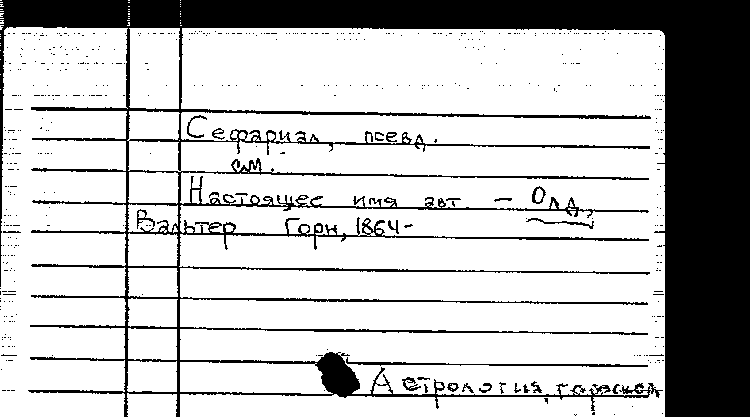 Сефариал, псевд.
см.
Настоящее имя авт. – Олд,
Вальтер Горн, 1864-
Астрология, гороскоп